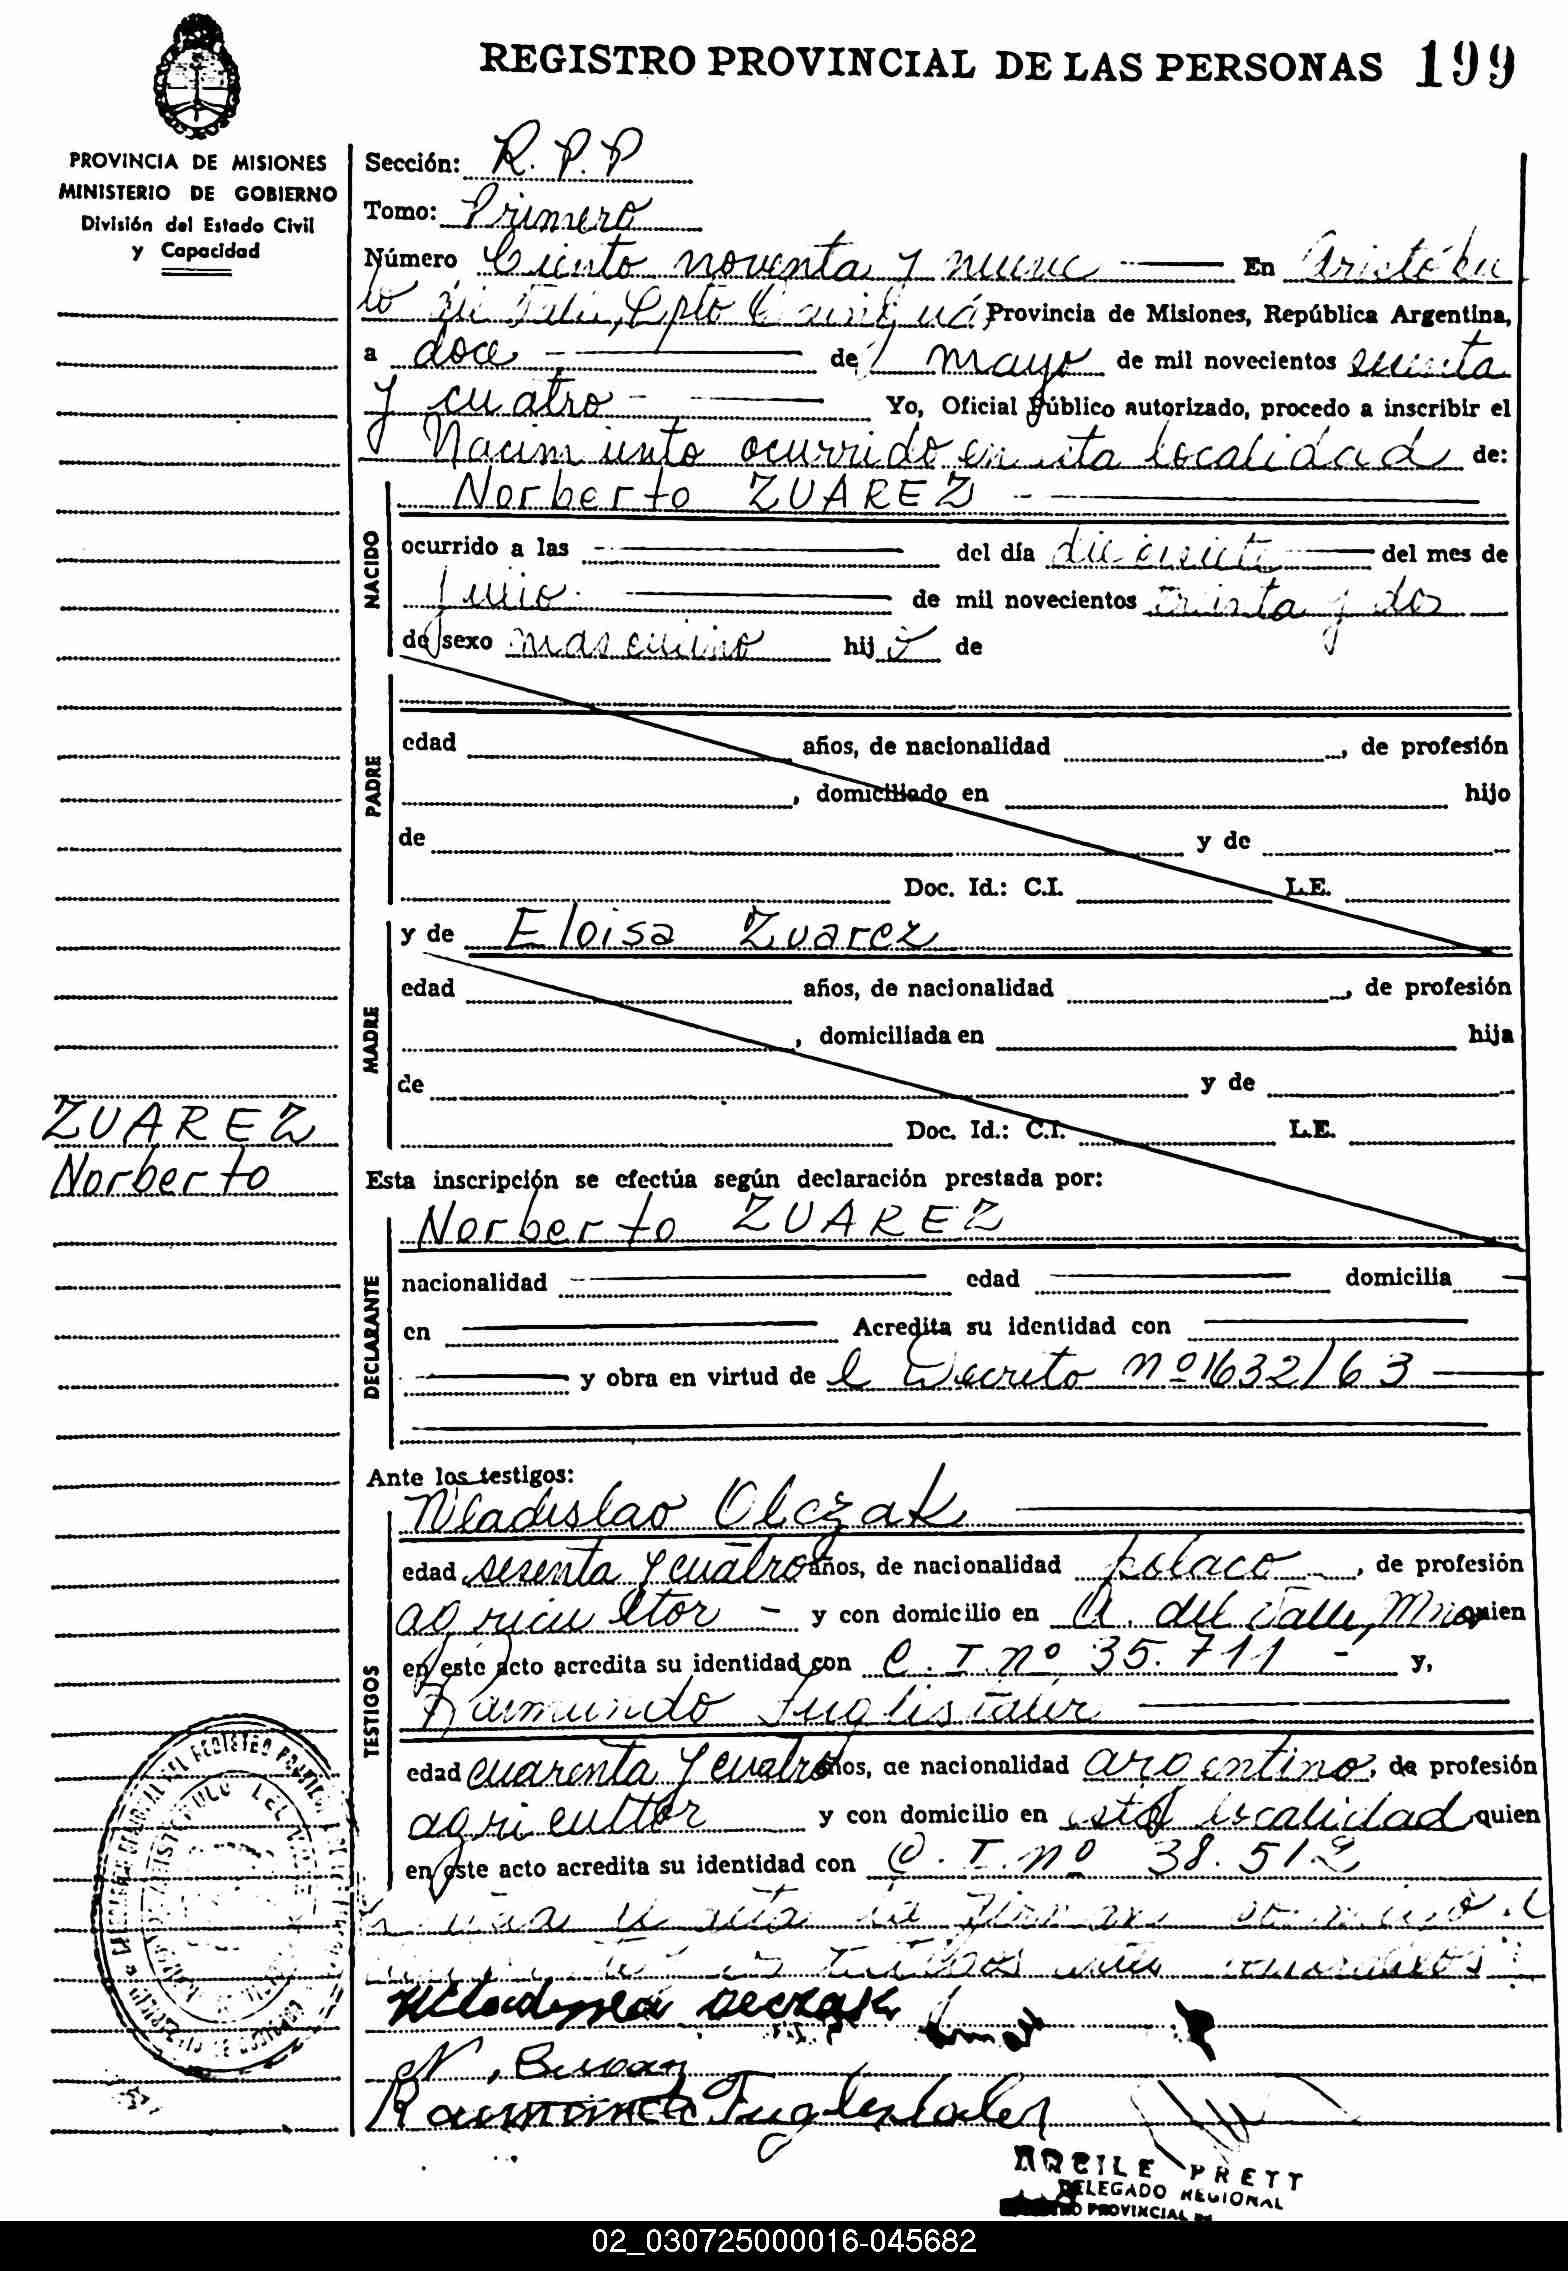 REGISTRO PROVINCIAL DE LAS PERSONAS 199
PROVINCIA DE MISIONES
MINISTERIO DE GOBIERNO
División del Estado Civil
y Capacidad
Sección: R.P.P
Tomo: Primero
Número Ciento noventa y nueve En Aristóbu
lo del Valle, Dpto Cainguás, Provincia de Misiones, República Argentina,
a doce de mayo de mil novecientos sesenta
y cuatro - Yo, Oficial Público autorizado, procedo a inscribir el
Nacimiento ocurrido en esta localidad de:
NACIDO
Norberto ZUAREZ -
ocurrido a las del día diecisiete del mes de
junio de mil novecientos treinta y dos
de sexo masculino hijo de
PADRE
edad años, de nacionalidad , de profesión
, domiciliado en hijo
de y de
Doc. Id.: C.I. L.E.
MADRE
y de Eloisa Zuarez
edad años, de nacionalidad , de profesión
, domiciliada en hija
de y de
Doc. Id.: C.I. L.E.
ZUAREZ
Norberto
Esta inscripción se efectúa según declaración prestada por:
DECLARANTE
Norberto ZUAREZ
nacionalidad edad domicilia
en Acredita su identidad con
y obra en virtud de l Decreto nº 1632/63
Ante los testigos:
TESTIGOS
Wladislao Olczak
edad sesenta y cuatro años, de nacionalidad polaco, de profesión
agricultor - y con domicilio en A. del Valle, Mnes quien
en este acto acredita su identidad con C.I. nº 35.711 - y,
Raimundo Fuglistaler
edad cuarenta y cuatro años, de nacionalidad argentino, de profesión
agricultor y con domicilio en esta localidad quien
en este acto acredita su identidad con C.I. nº 38.512
Leída el acta la firman conmigo el
testigos antes
N.
Raimundo Fuglistaler
ARCILE PRETT
DELEGADO REGIONAL
PROVINCIAL
02_030725000016-045682